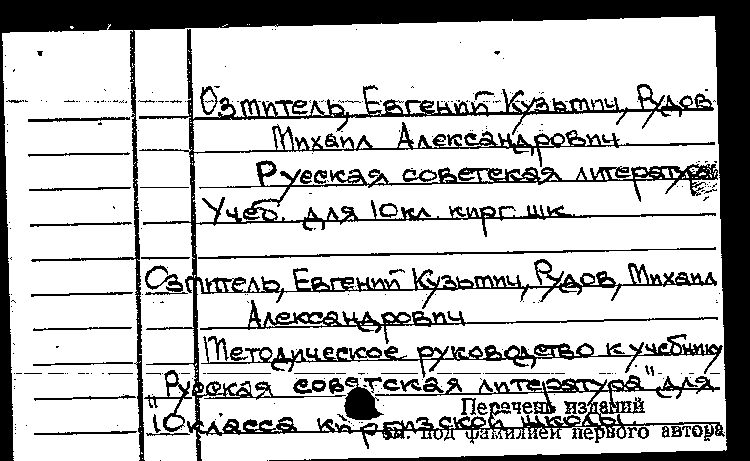 Озмитель, Евгений Кузьмич, Рудов
Михаил Александрович
Русская советская литература
Учеб. для 10 кл. кирг. шк.
Озмитель, Евгений Кузьмич, Рудов, Михаил
Александрович
Методическое руководство к учебнику
"Русская советская литература" для
Перечень изданий
10 класса киргизской школы.
см. под фамилией первого автора